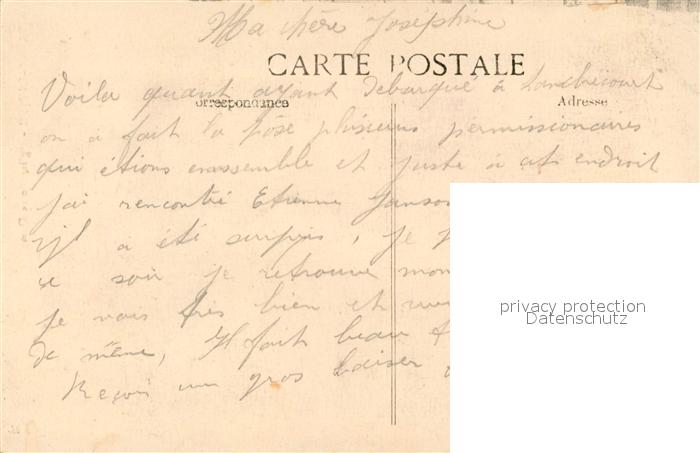 Ma chère Joséphine
CARTE POSTALE
Voila quant ayant debarqué à
Correspondance
Adresse
on a fait la pose plusieurs permissionaires
qui étions enssemble et juste à cet endroit
j'ai rencontré Etienne
il à été surpris, je
ce soir je retrouve mon
je vais très bien et
de même, Il fait beau
Reçois un gros baiser
privacy protection
Datenschutz